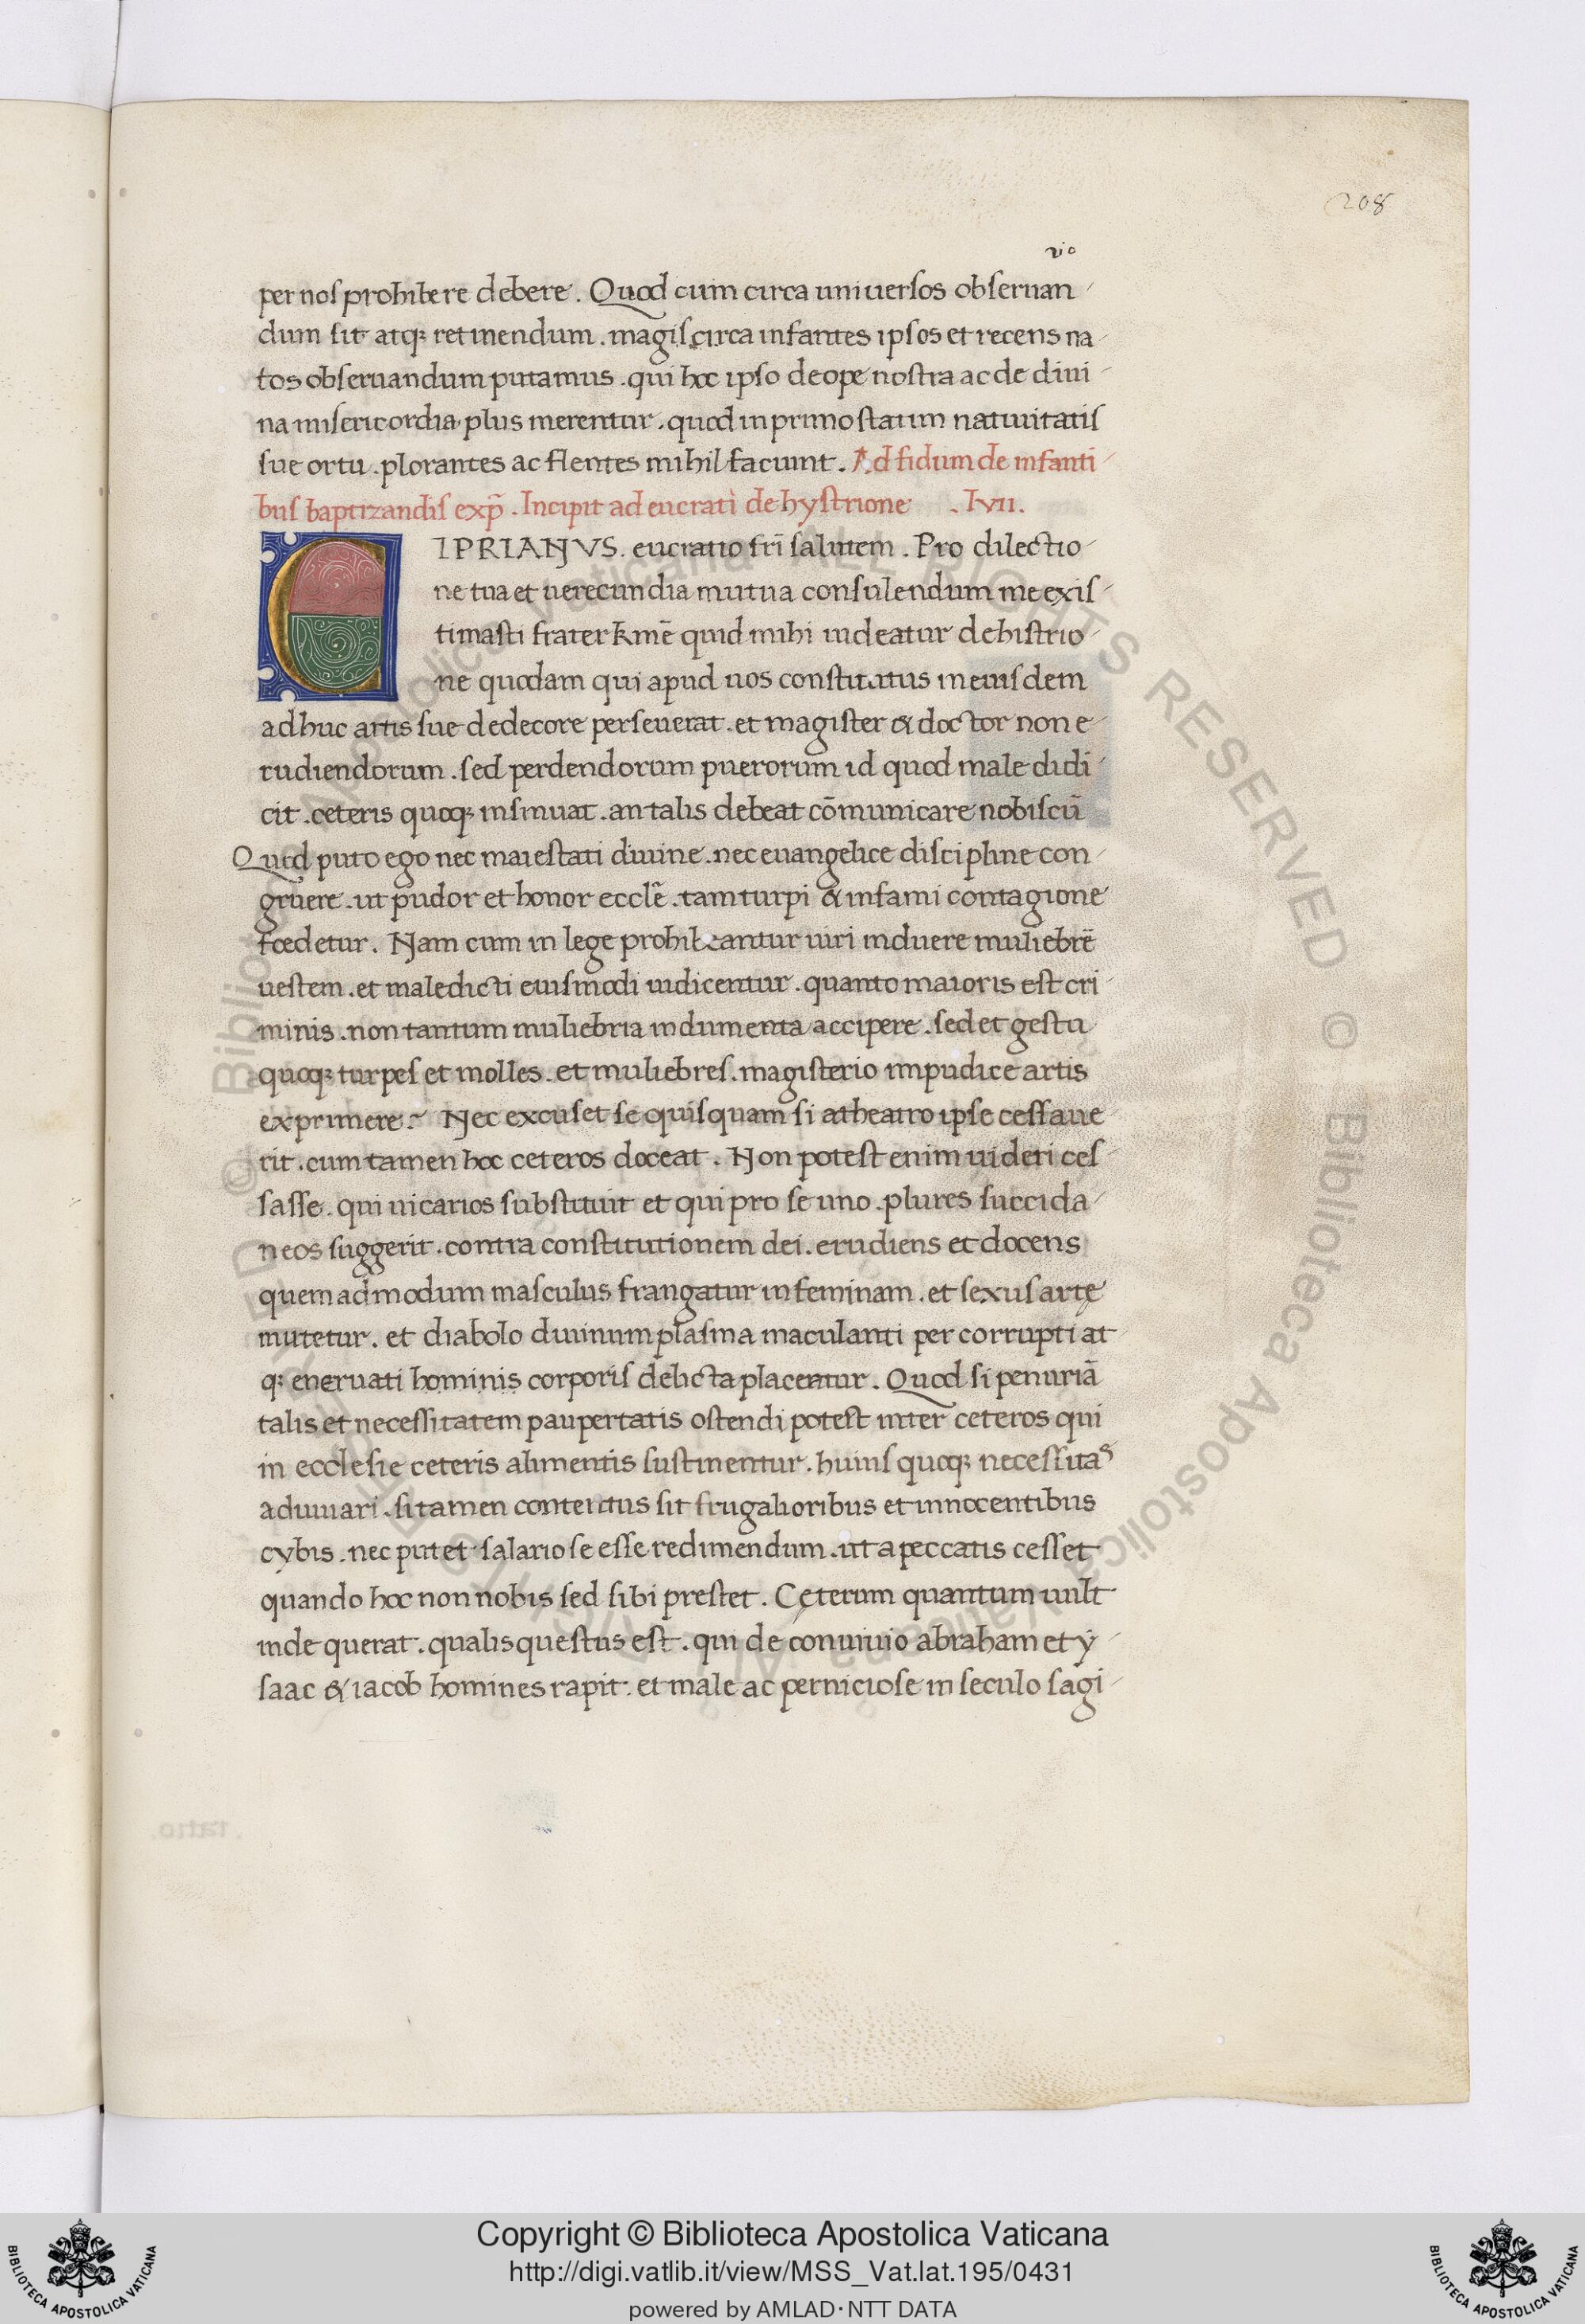 208
vio
per nos prohibere debere. Quod cum circa uniuersos obseruan-
dum sit atq; retinendum. magis circa infantes ipsos et recens na-
tos obseruandum putamus. qui hoc ipso de ope nostra ac de diui-
na misericordia plus merentur. quod in primo statim natiuitatis
sue ortu. plorantes ac flentes nihil faciunt. Ad fidum de infanti-
bus baptizandis exp̄. Incipit ad eucratī de hystrione .lvii.
CIPRIANVS. eucratio frī salutem. Pro dilectio-
ne tua et uerecundia mutua consulendum me exis-
timasti frater kmē quid mihi uideatur de histrio-
ne quodam qui apud uos constitutus in eiusdem
adhuc artis sue dedecore perseuerat. et magister & doctor non e-
rudiendorum. sed perdendorum puerorum id quod male didi-
cit. ceteris quoq; insinuat. an talis debeat cōmunicare nobiscū
Quod puto ego nec maiestati diuine. nec euangelice discipline con-
gruere. ut pudor et honor ecclē. tam turpi & infami contagione
foedetur. Nam cum in lege prohibeantur uiri induere muliebrē
uestem. et maledicti eiusmodi iudicentur. quanto maioris est cri-
minis. non tantum muliebria indumenta accipere. sed et gestu
quoq; turpes et molles. et muliebres. magisterio impudice artis
exprimere? Nec excuset se quisquam si atheatro ipse cessaue-
rit. cum tamen hoc ceteros doceat. Non potest enim uideri ces-
sasse. qui uicarios substituit et qui pro se uno. plures succida-
neos suggerit. contra constitutionem dei. erudiens et docens
quemadmodum masculus frangatur in feminam. et sexus arte
mutetur. et diabolo diuinum plasma maculanti per corrupti at-
q; eneruati hominis corporis delicta placentur. Quod si penuriā
talis et necessitatem paupertatis ostendi potest inter ceteros qui
in ecclesie ceteris alimentis sustinentur. huius quoq; necessitas
adiuuari. si tamen contentus sit frugalioribus et innocentibus
cybis. nec putet salario se esse redimendum. ut a peccatis cesset
quando hoc non nobis sed sibi prestet. Cęterum quantum uult
inde querat. qualis questus est. qui de conuiuio abraham et y-
saac & iacob homines rapit. et male ac perniciose in seculo sagi-
Copyright © Biblioteca Apostolica Vaticana
http://digi.vatlib.it/view/MSS_Vat.lat.195/0431
powered by AMLAD·NTT DATA
BIBLIOTECA APOSTOLICA VATICANA
BIBLIOTECA APOSTOLICA VATICANA